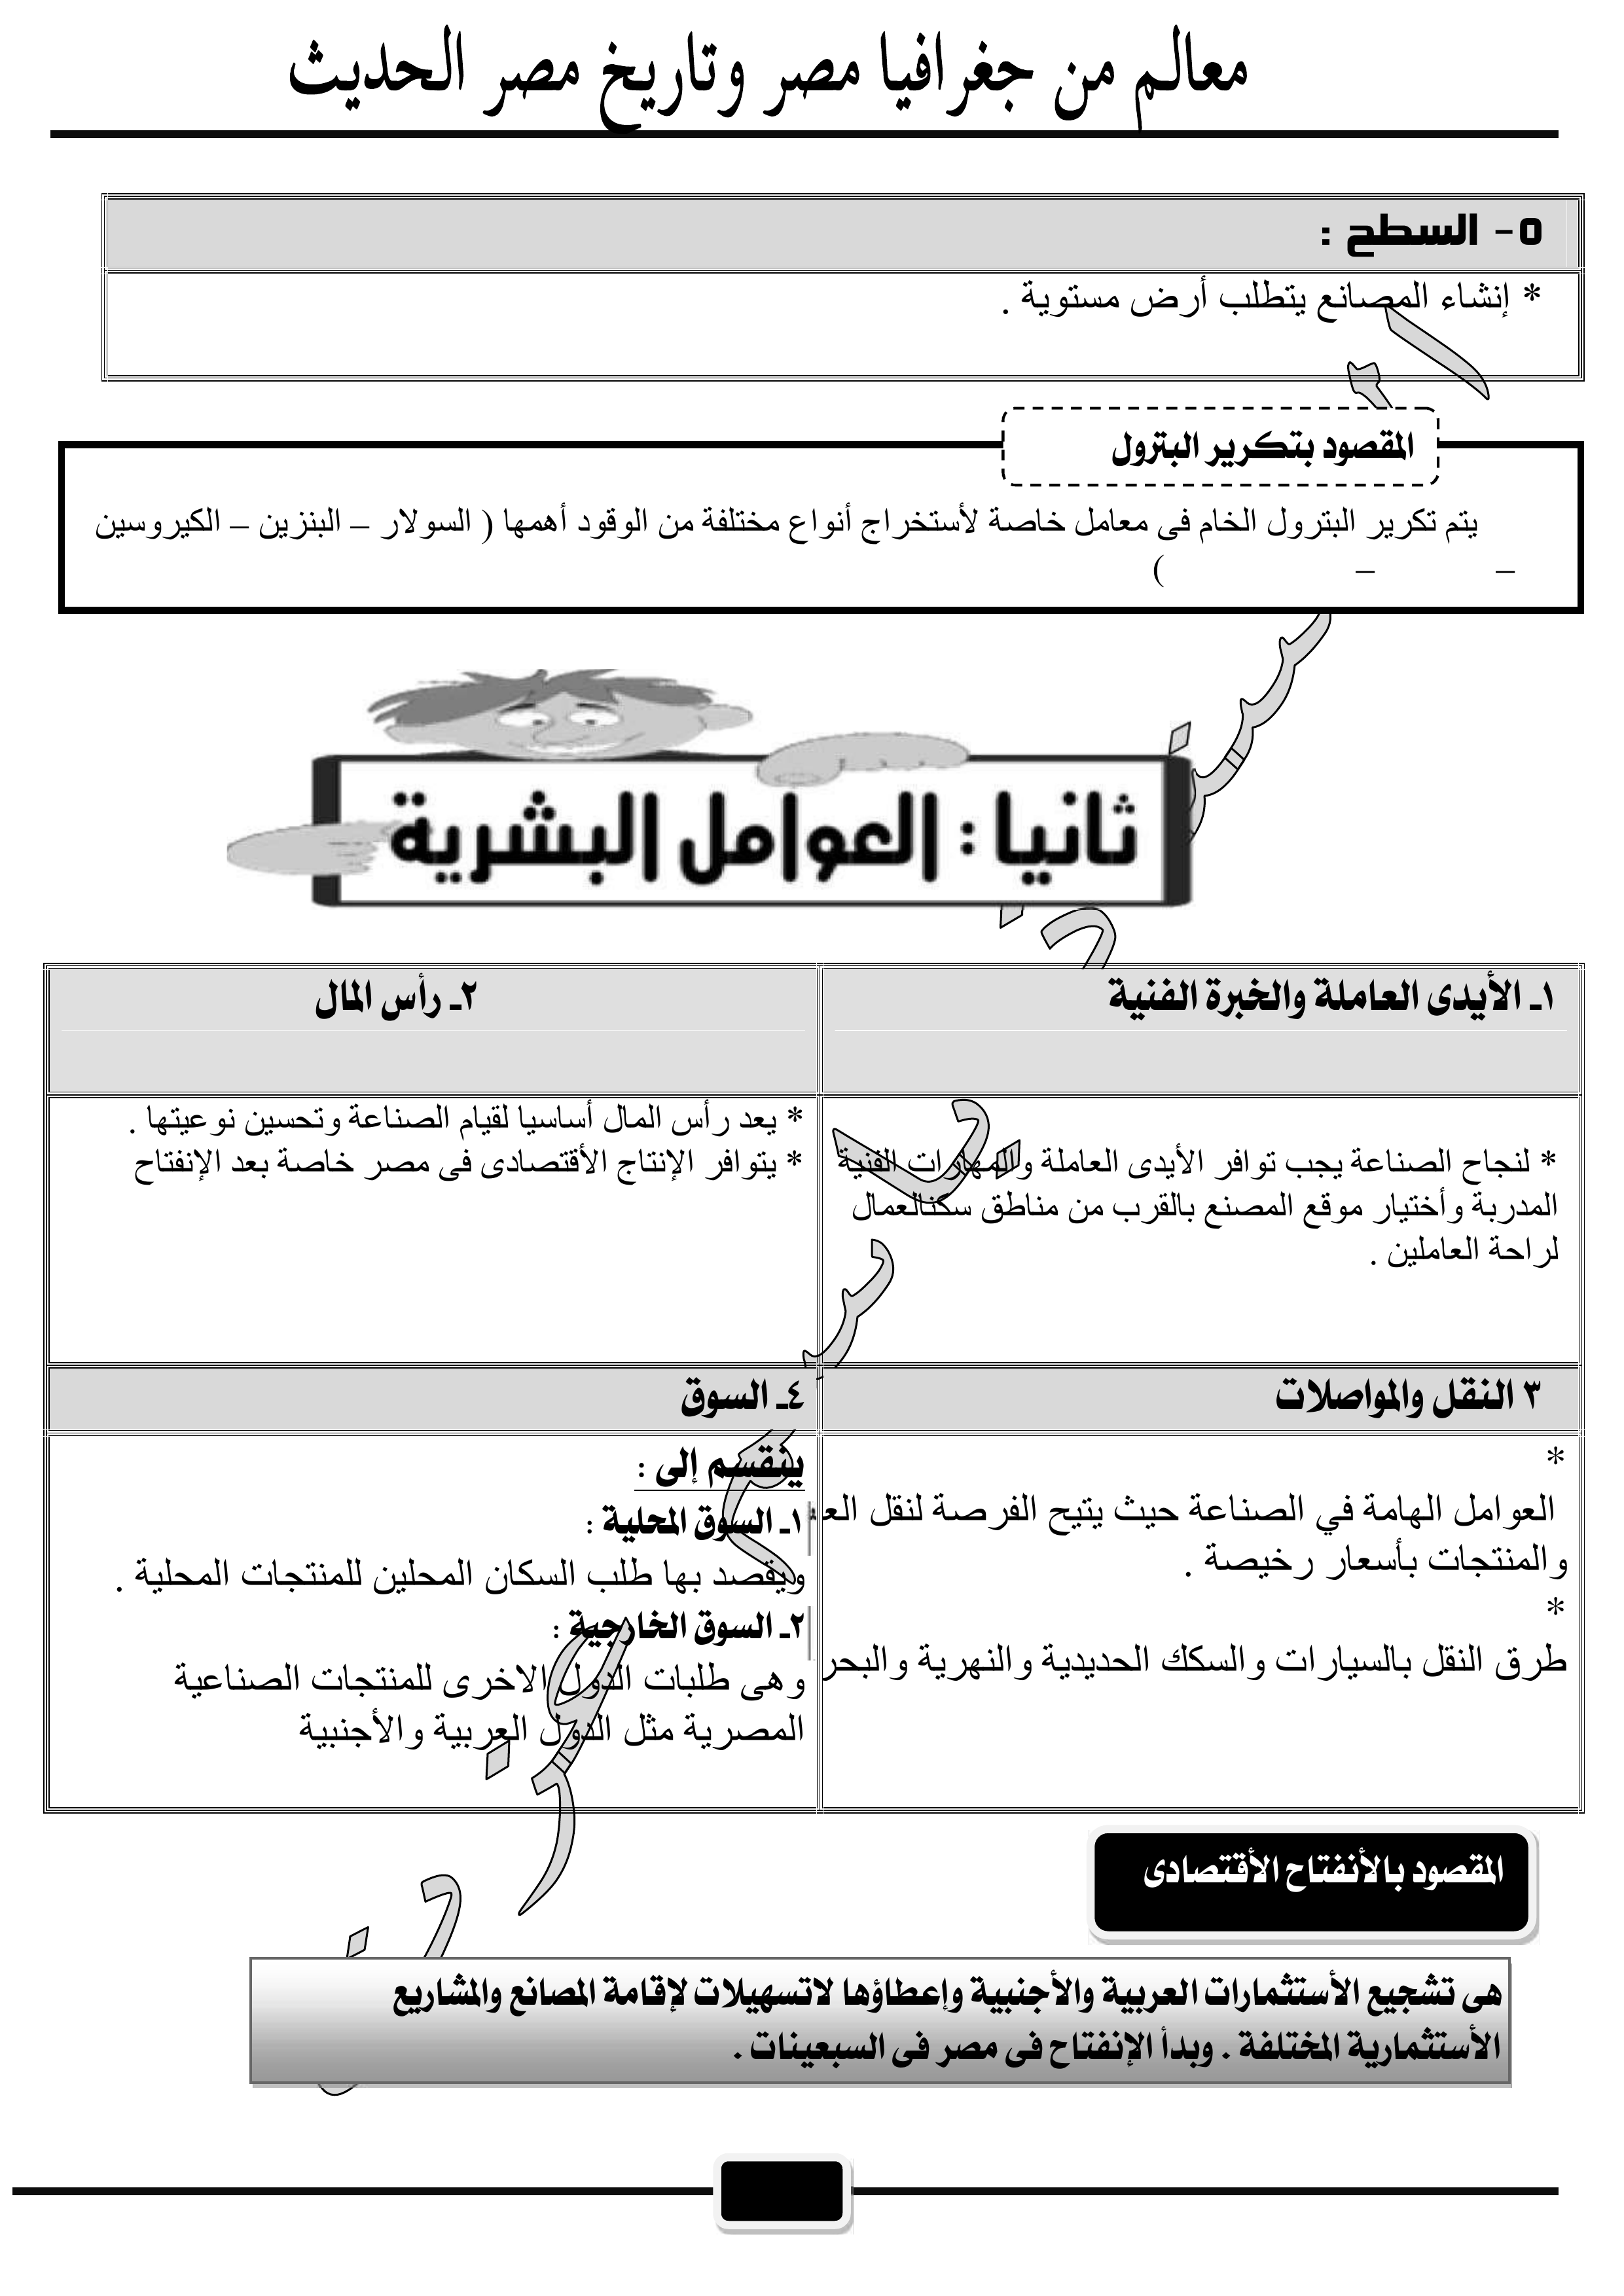 معالم من جغرافيا مصر وتاريخ مصر الحديث
٥- السطح :
* إنشاء المصانع يتطلب أرض مستوية .
المقصود بتكرير البترول
يتم تكرير البترول الخام فى معامل خاصة لأستخراج أنواع مختلفة من الوقود أهمها ( السولار – البنزين – الكيروسين
– – )
ثانيا : العوامل البشرية
١ـ الأيدى العاملة والخبرة الفنية
* لنجاح الصناعة يجب توافر الأيدى العاملة والمهارات الفنية
المدربة وأختيار موقع المصنع بالقرب من مناطق سكنالعمال
لراحة العاملين .
٢ـ رأس المال
* يعد رأس المال أساسيا لقيام الصناعة وتحسين نوعيتها .
* يتوافر الإنتاج الأقتصادى فى مصر خاصة بعد الإنفتاح
٣ النقل والمواصلات
*
العوامل الهامة في الصناعة حيث يتيح الفرصة لنقل
والمنتجات بأسعار رخيصة .
*
طرق النقل بالسيارات والسكك الحديدية والنهرية والبحر
٤ـ السوق
ينقسم إلى :
١ـ السوق المحلية :
ويقصد بها طلب السكان المحلين للمنتجات المحلية .
٢ـ السوق الخارجية :
وهى طلبات الدول الاخرى للمنتجات الصناعية
المصرية مثل الدول العربية والأجنبية
المقصود بالأنفتاح الأقتصادى
هى تشجيع الأستثمارات العربية والأجنبية وإعطاؤها لاتسهيلات لإقامة المصانع والمشاريع
الأستثمارية المختلفة . وبدأ الإنفتاح فى مصر فى السبعينات .